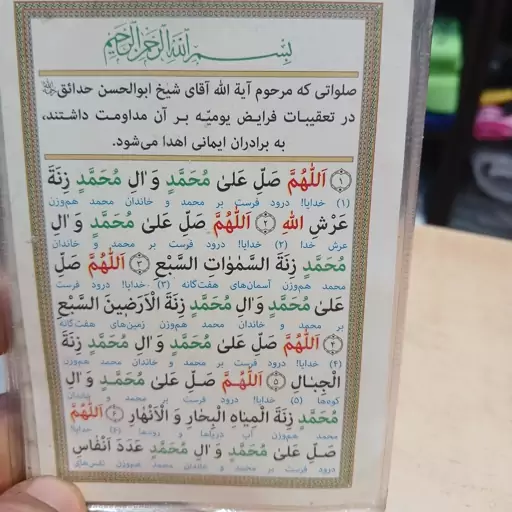 بِسْمِ اللّٰهِ الرَّحْمٰنِ الرَّحِیْمِ
صلواتی که مرحوم آیة الله آقای شیخ ابوالحسن حدائق
در تعقیبات فرایض یومیّه بر آن مداومت داشتند،
به برادران ایمانی اهدا می‌شود.
﴿۱﴾ اَللّٰهُمَّ صَلِّ عَلیٰ مُحَمَّدٍ وَ الِ مُحَمَّدٍ زِنَةَ
(۱) خدایا! درود فرست بر محمد و خاندان محمد هم‌وزن
عَرْشِ اللهِ ﴿۲﴾ اَللّٰهُمَّ صَلِّ عَلیٰ مُحَمَّدٍ وَ الِ
عرش خدا (۲) خدایا! درود فرست بر محمد و خاندان
مُحَمَّدٍ زِنَةَ السَّمٰوٰاتِ السَّبْعِ ﴿۳﴾ اَللّٰهُمَّ صَلِّ
محمد هم‌وزن آسمان‌های هفت‌گانه (۳) خدایا! درود فرست
عَلیٰ مُحَمَّدٍ وَ الِ مُحَمَّدٍ زِنَةَ الْاَرَضینَ السَّبْعِ
بر محمد و خاندان محمد هم‌وزن زمین‌های هفت‌گانه
﴿۴﴾ اَللّٰهُمَّ صَلِّ عَلیٰ مُحَمَّدٍ وَ الِ مُحَمَّدٍ زِنَةَ
(۴) خدایا! درود فرست بر محمد و خاندان محمد هم‌وزن
الْجِبٰالِ ﴿۵﴾ اَللّٰهُمَّ صَلِّ عَلیٰ مُحَمَّدٍ وَ الِ
کوه‌ها (۵) خدایا! درود فرست بر محمد و خاندان
مُحَمَّدٍ زِنَةَ الْمِیٰاهِ الْبِحٰارِ وَ الْاَنْهٰارِ ﴿۶﴾ اَللّٰهُمَّ
محمد هم‌وزن آب دریاها و رودها (۶) خدایا!
صَلِّ عَلیٰ مُحَمَّدٍ وَ الِ مُحَمَّدٍ عَدَدَ اَنْفٰاسِ
درود فرست بر محمد و خاندان محمد هم‌وزن نفس‌های